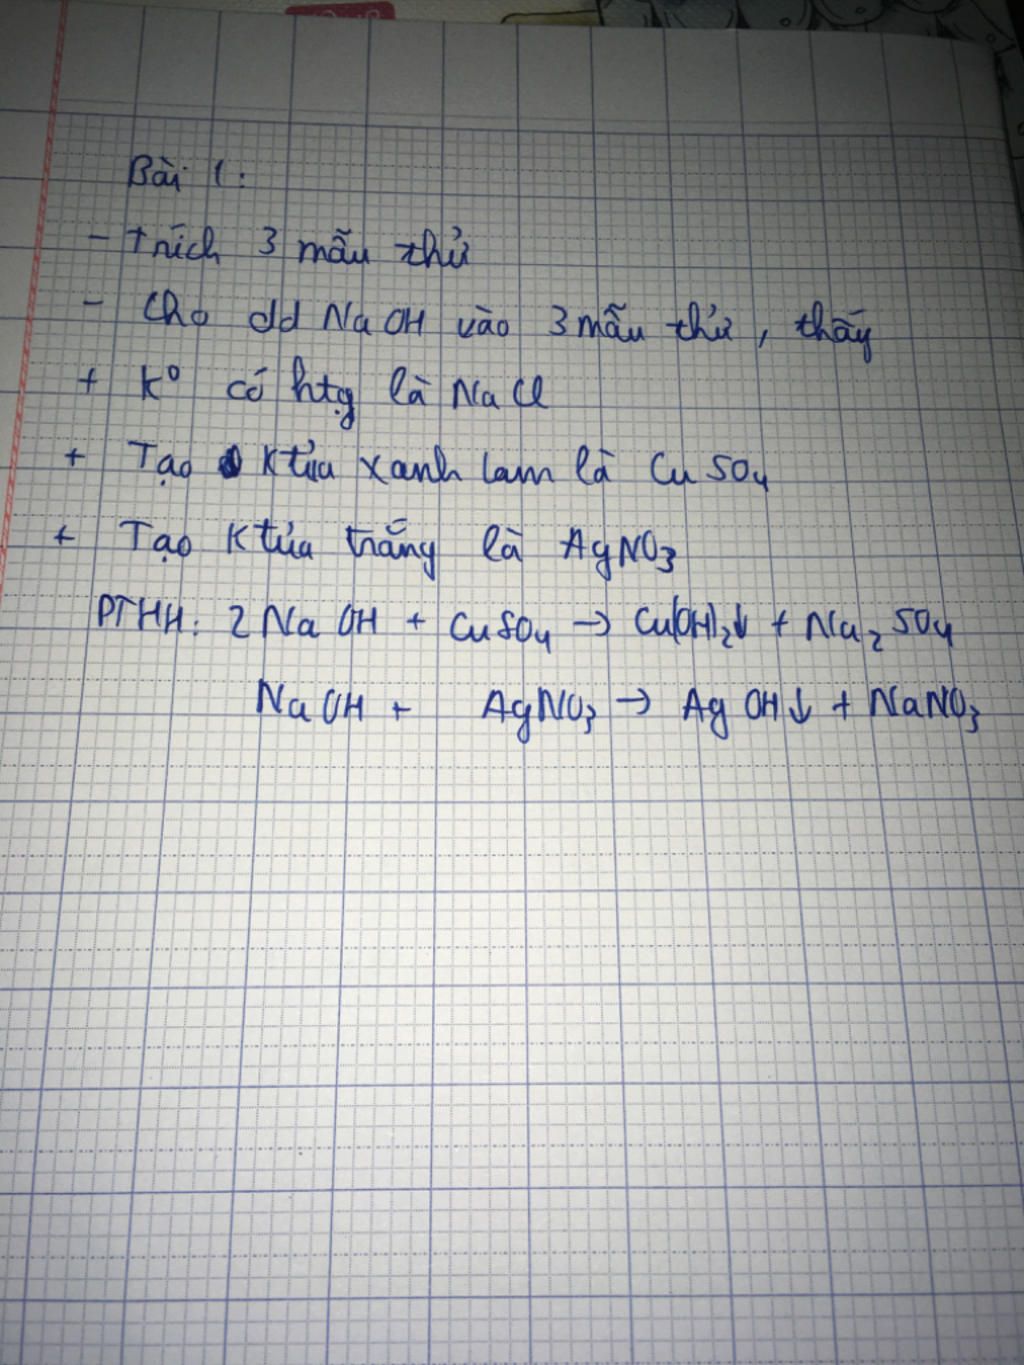 Bài 1:
- trích 3 mẫu thử
- Cho dd NaOH vào 3 mẫu thử, thấy
+ K° có htg là NaCl
+ Tạo ktủa xanh lam là CuSO₄
+ Tạo ktủa trắng là AgNO₃
PTHH: 2NaOH + CuSO₄ → Cu(OH)₂↓ + Na₂SO₄
NaOH + AgNO₃ → AgOH↓ + NaNO₃